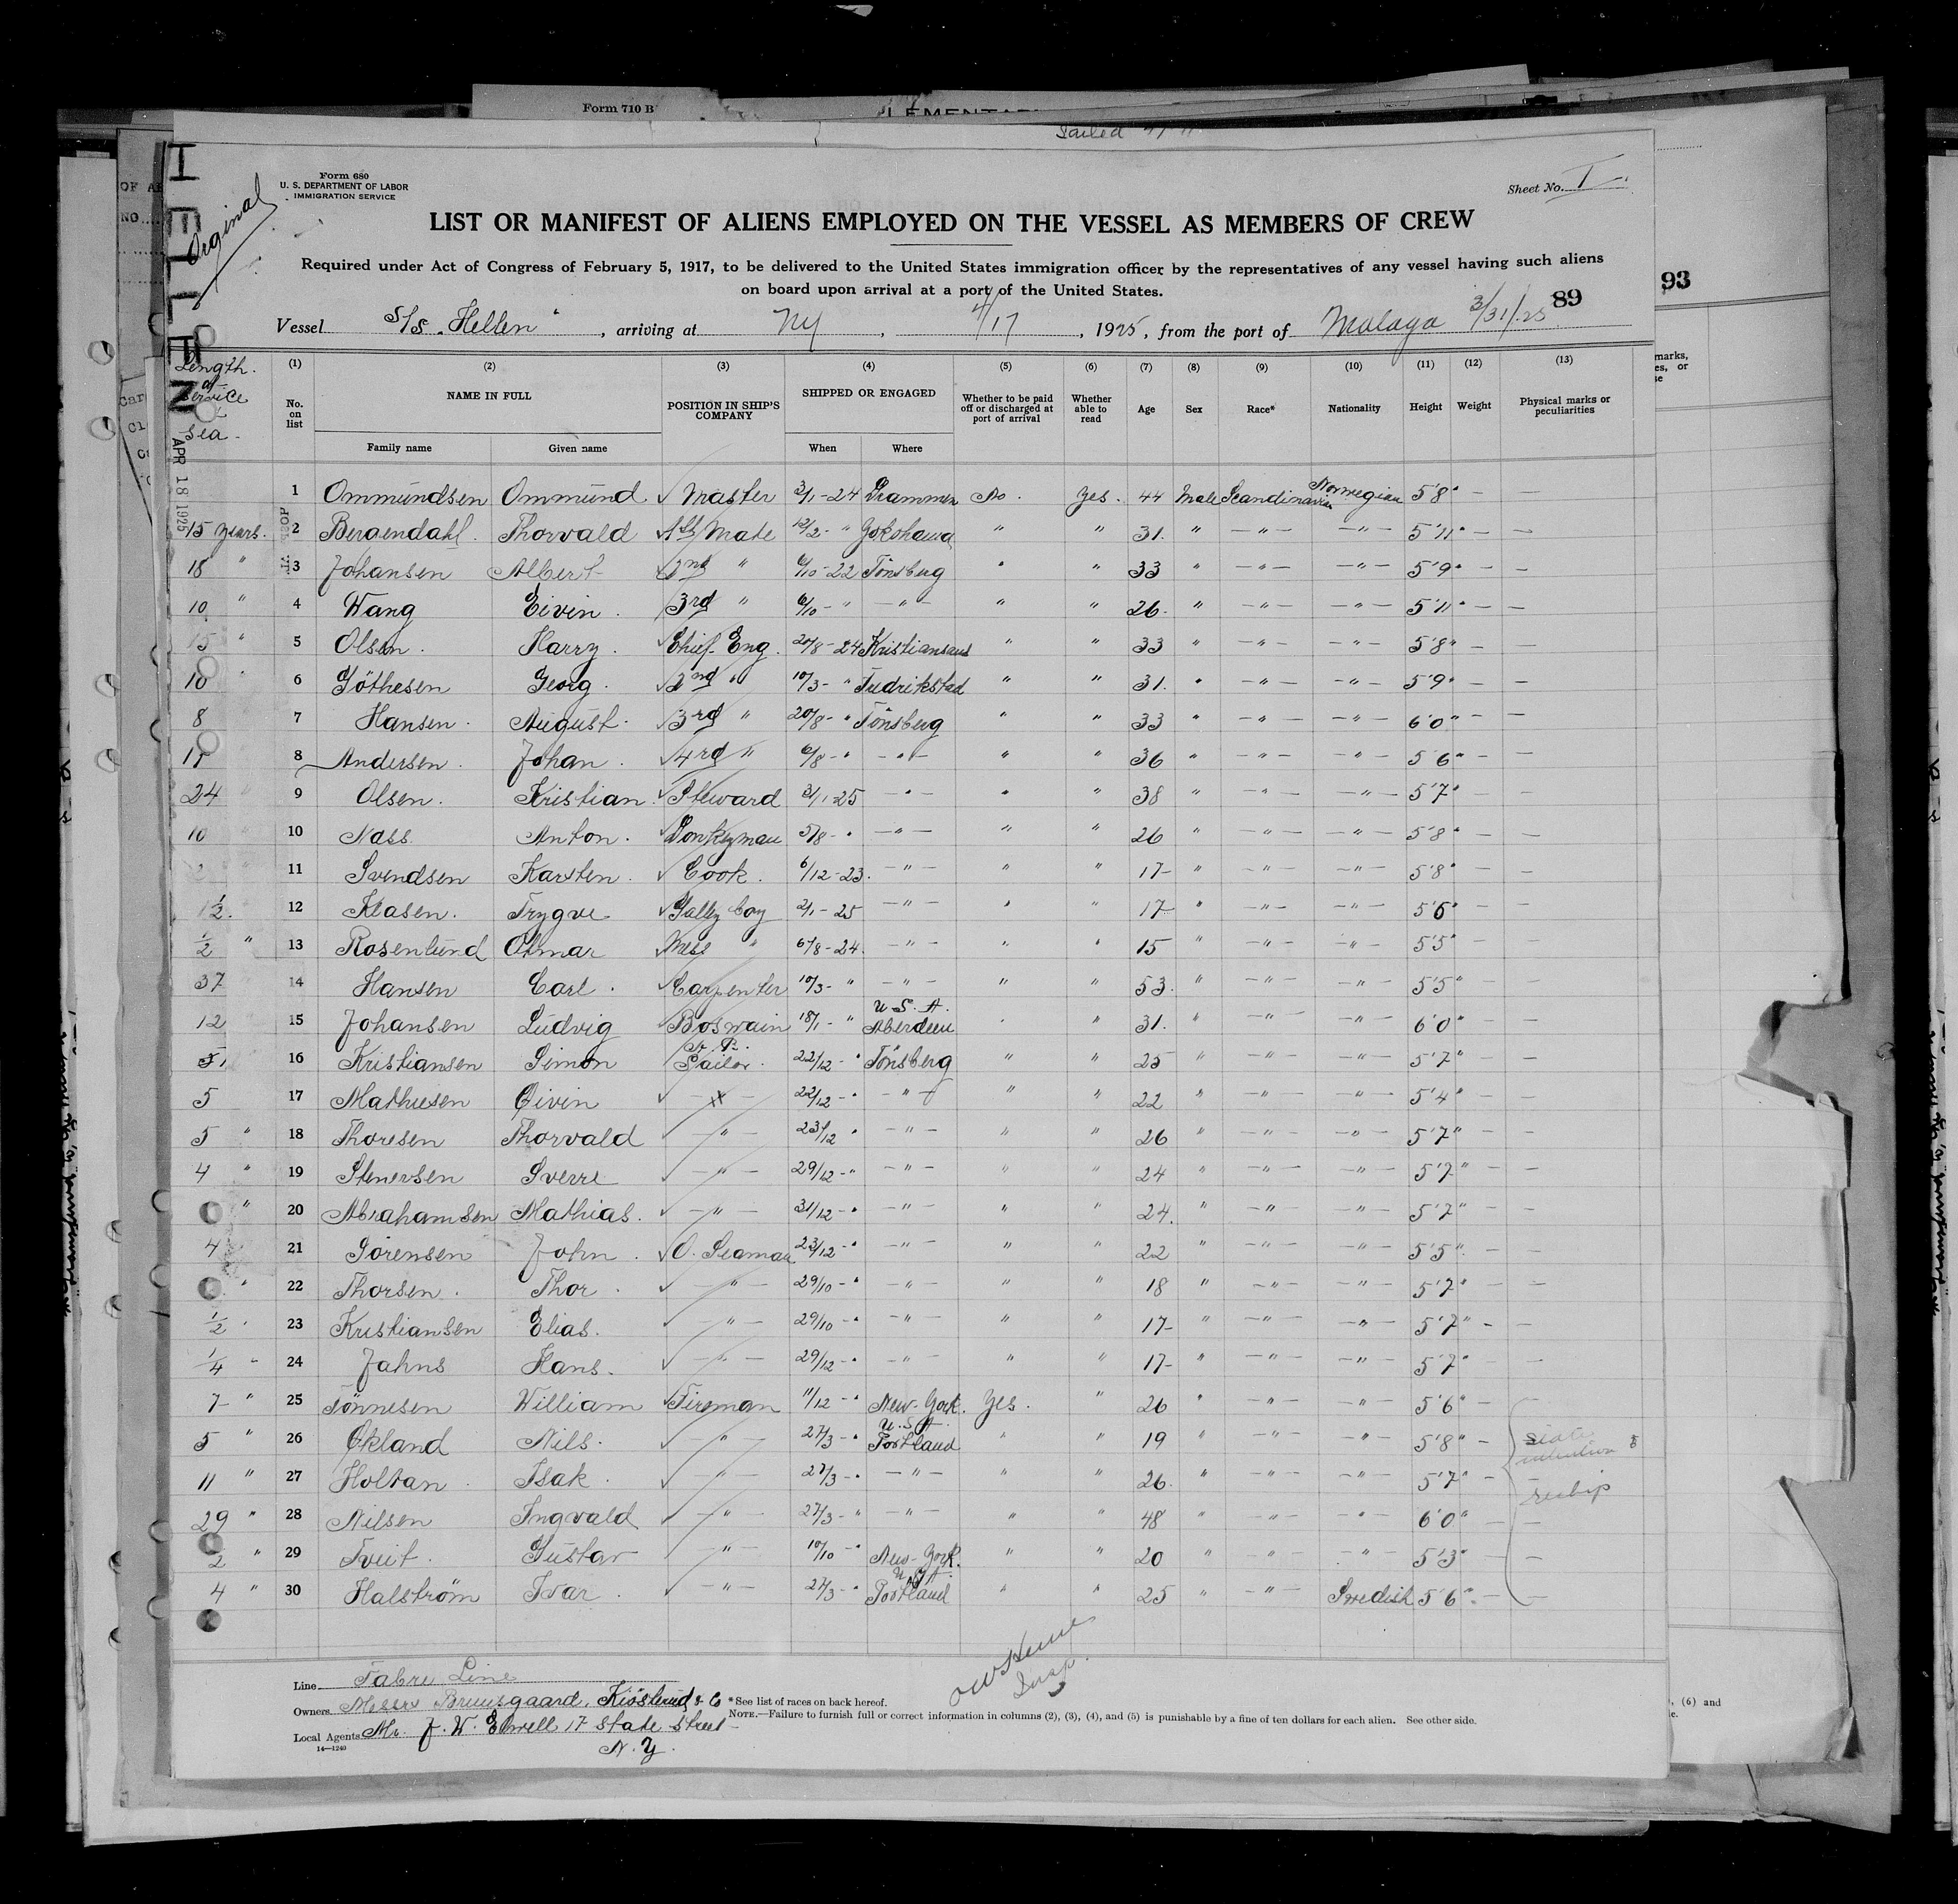 Form 710 B
Sailed
Form 680
U. S. DEPARTMENT OF LABOR
IMMIGRATION SERVICE
Orginal
Sheet No. I
LIST OR MANIFEST OF ALIENS EMPLOYED ON THE VESSEL AS MEMBERS OF CREW
Required under Act of Congress of February 5, 1917, to be delivered to the United States immigration officer by the representatives of any vessel having such aliens
on board upon arrival at a port of the United States.
93
89
Vessel S/S "Hellen" , arriving at NY , 4/17 , 1925 , from the port of Malaga 3/31/25
Length of service sea.
(1) (2) (3) (4) (5) (6) (7) (8) (9) (10) (11) (12) (13)
No. on list NAME IN FULL POSITION IN SHIP'S COMPANY SHIPPED OR ENGAGED Whether to be paid off or discharged at port of arrival Whether able to read Age Sex Race* Nationality Height Weight Physical marks or peculiarities
Family name Given name When Where
APR 18 1925
1 Ommundsen Ommund Master 3/1-24 Drammen No. Yes. 44 Male Scandinavian Norwegian 5'8" — —
15 years. 2 Bergendahl. Thorvald 1st Mate 12/2- " Yokohama " " 31. " — " — — " — 5'11" — —
18 " 3 Johansen Albert 2nd " 6/10-22 Tönsberg " " 33 " — " — — " — 5'9" — —
10 " 4 Wang Eivin. 3rd " 6/10- " — " — " " 26. " — " — — " — 5'11" — —
15 " 5 Olsen. Harry. Chief Eng. 20/8-24 Kristiansand " " 33 " — " — — " — 5'8" — —
10 " 6 Göthesen Georg. 2nd " 10/3- " Fredrikstad " " 31. " — " — — " — 5'9" — —
8 7 Hansen. August. 3rd " 20/8- " Tönsberg " " 33 " — " — — " — 6'0" — —
8 Andersen. Johan. 4rd " 6/8- " — " — " " 36 " — " — — " — 5'6" — —
24 9 Olsen. Kristian. Steward 3/1-25 — " — " " 38 " — " — — " — 5'7" — —
10 10 Nass Anton. Donkeyman 5/8- " — " — " " 26 " — " — — " — 5'8" — —
2 11 Svendsen Karsten. Cook. 6/12-23. — " — " " 17 " — " — — " — 5'8" — —
1½. 12 Klasen. Trygve Galley boy 2/1-25 — " — " " 17 " — " — — " — 5'6" — —
½ " 13 Rosenlund Otmar Mess " 6/8-24. — " — " " 15 " — " — — " — 5'5" — —
37 14 Hansen Carl. Carpenter 10/3- " — " — " " 53. " — " — — " — 5'5" — —
12 15 Johansen Ludvig Boswain 18/1- " U.S.A. Aberdeen " " 31. " — " — — " — 6'0" — —
16 Kristiansen Simon Sailor. 22/12- " Tönsberg " " 25 " — " — — " — 5'7" — —
5 17 Mathiesen Eivin — " — 22/12- " — " — " " 22 " — " — — " — 5'4" — —
5 " 18 Thoresen Thorvald — " — 23/12 " — " — " " 26 " — " — — " — 5'7" — —
4 " 19 Stenersen Sverre — " — 29/12- " — " — " " 24 " — " — — " — 5'7" — —
" 20 Abrahamsen Mathias. — " — 31/12- " — " — " " 24. " — " — — " — 5'7" — —
4 " 21 Sörensen John. O. Seaman 23/12- " — " — " " 22 " — " — — " — 5'5" — —
" 22 Thorsen. Thor. — " — 29/10- " — " — " " 18 " — " — — " — 5'7" — —
½ " 23 Kristiansen Elias. — " — 29/10- " — " — " " 17 " — " — — " — 5'7" — —
¼ " 24 Jahns Hans. — " — 29/12- " — " — " " 17 " — " — — " — 5'7" — —
7 " 25 Tönnesen William Fireman 11/12- " New-York. Yes. " 26 " — " — — " — 5'6" —
5 " 26 Økland Nils. — " — 27/3- " U.S.A. Portland " " 19 " — " — — " — 5'8" — state intention to
11 " 27 Holtan Isak. — " — 27/3- " — " — " " 26. " — " — — " — 5'7" — —
reship
29 " 28 Nilsen Ingvald — " — 27/3- " — " — " " 48 " — " — — " — 6'0" — —
2 " 29 Tveit. Gustav — " — 10/10 " New-York. " " 20 " — " — — " — 5'3" — —
4 " 30 Halström Ivar. — " — 27/3- " U.S.A. Portland " " 25 " — " — Swedish 5'6" — —
Insp.
Line Fabre Line
Owners Messrs Bruusgaard, Kiösterud & Co *See list of races on back hereof.
NOTE.—Failure to furnish full or correct information in columns (2), (3), (4), and (5) is punishable by a fine of ten dollars for each alien. See other side.
Local Agents Mr. J. W. Elwell 17 State Street
14—1240
N. Y.